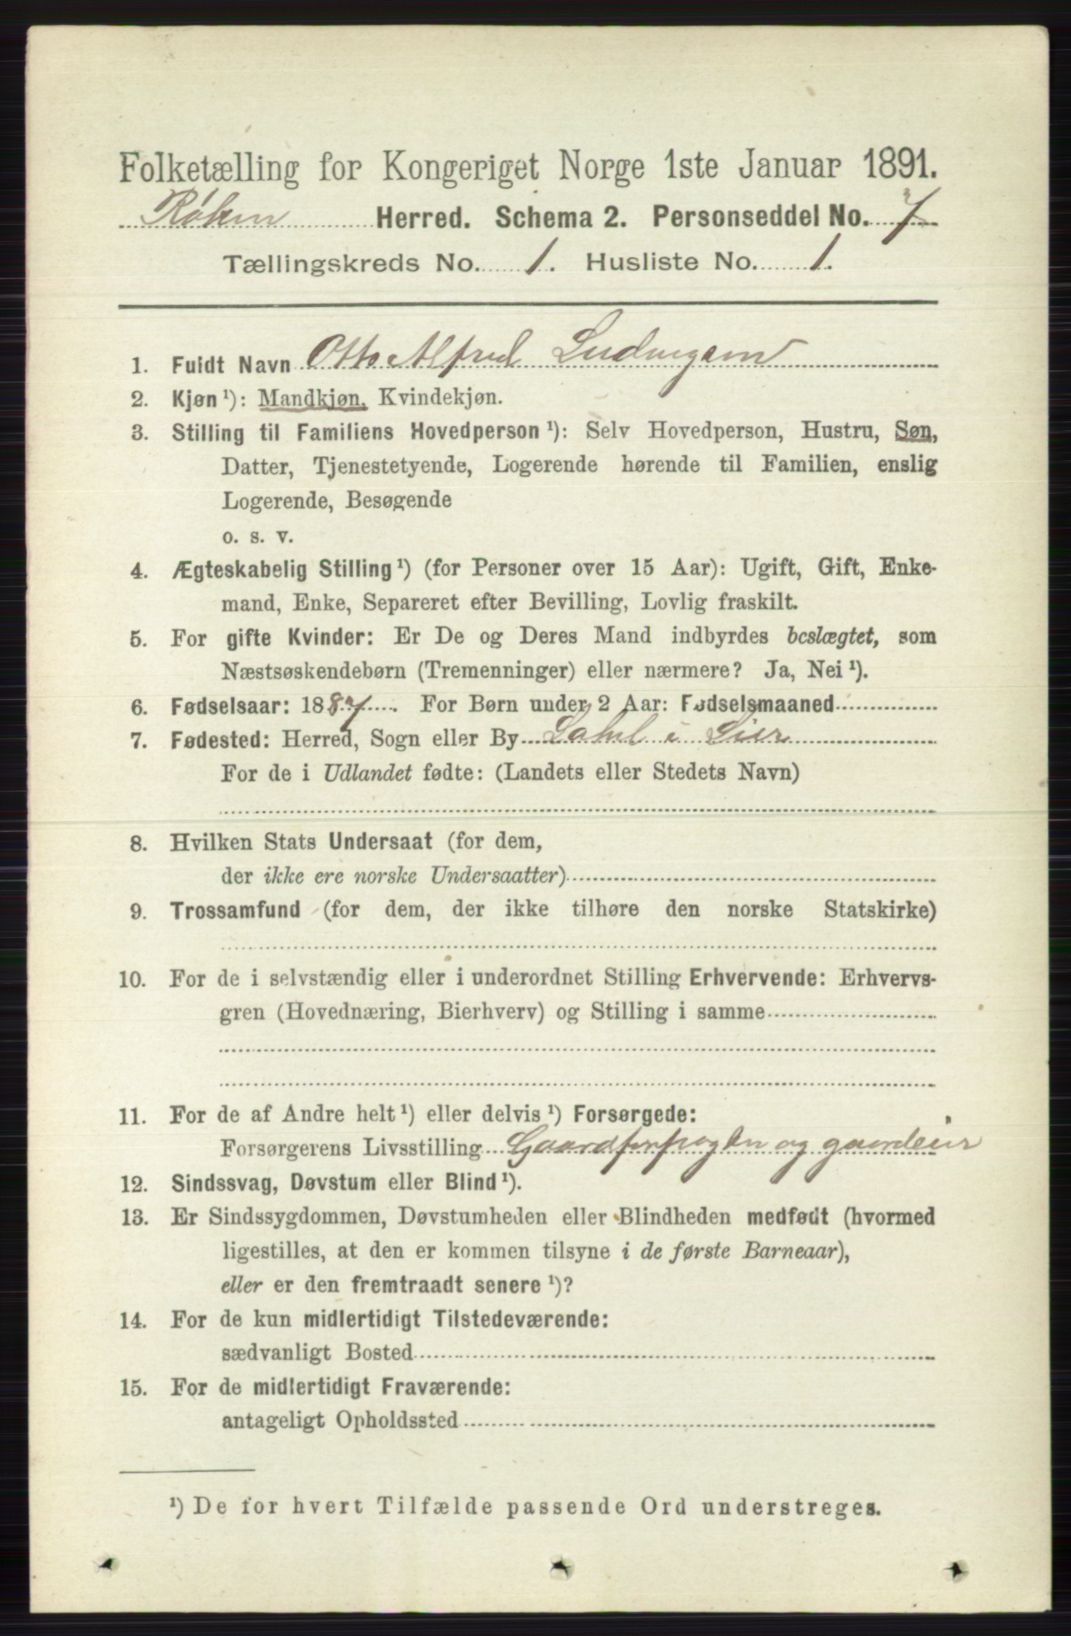 Folketælling for Kongeriget Norge 1ste Januar 1891.
Røken Herred. Schema 2. Personseddel No. 7
Tællingskreds No. 1. Husliste No. 1.
1. Fuldt Navn Otto Alfred Ludvigsen
2. Kjøn ¹): Mandkjøn, Kvindekjøn.
3. Stilling til Familiens Hovedperson ¹): Selv Hovedperson, Hustru, Søn,
Datter, Tjenestetyende, Logerende hørende til Familien, enslig
Logerende, Besøgende
o. s. v.
4. Ægteskabelig Stilling ¹) (for Personer over 15 Aar): Ugift, Gift, Enke-
mand, Enke, Separeret efter Bevilling, Lovlig fraskilt.
5. For gifte Kvinder: Er De og Deres Mand indbyrdes beslægtet, som
Næstsøskendebørn (Tremenninger) eller nærmere? Ja, Nei ¹).
6. Fødselsaar: 1887. For Børn under 2 Aar: Fødselsmaaned
7. Fødested: Herred, Sogn eller By i Lier
For de i Udlandet fødte: (Landets eller Stedets Navn)
8. Hvilken Stats Undersaat (for dem,
der ikke ere norske Undersaatter)
9. Trossamfund (for dem, der ikke tilhøre den norske Statskirke)
10. For de i selvstændig eller i underordnet Stilling Erhvervende: Erhvervs-
gren (Hovednæring, Bierhverv) og Stilling i samme
11. For de af Andre helt ¹) eller delvis ¹) Forsørgede:
Forsørgerens Livsstilling Gaardforpagter og gaardeier
12. Sindssvag, Døvstum eller Blind ¹).
13. Er Sindssygdommen, Døvstumheden eller Blindheden medfødt (hvormed
ligestilles, at den er kommen tilsyne i de første Barneaar),
eller er den fremtraadt senere ¹)?
14. For de kun midlertidigt Tilstedeværende:
sædvanligt Bosted
15. For de midlertidigt Fraværende:
antageligt Opholdssted
¹) De for hvert Tilfælde passende Ord understreges.